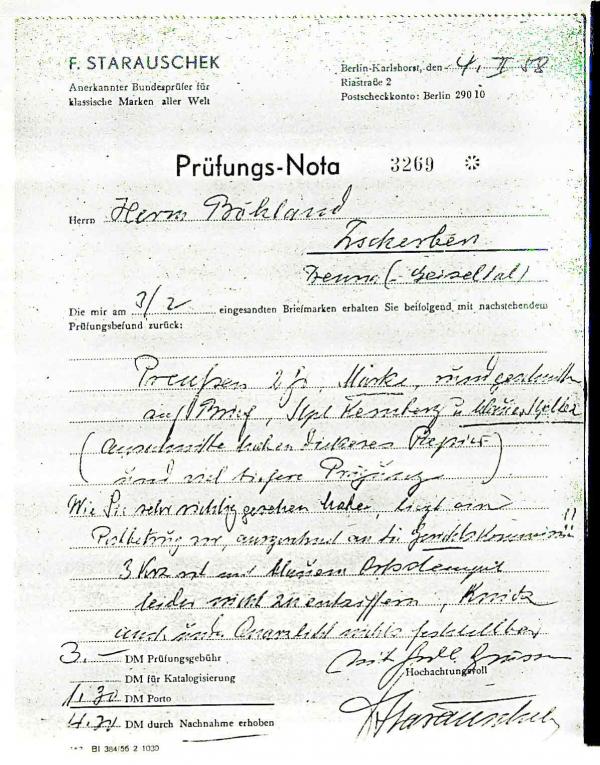 F. STARAUSCHEK
Anerkannter Bundesprüfer für
klassische Marken aller Welt
Berlin-Karlshorst, den 4. II 58
Riastraße 2
Postscheckkonto: Berlin 290 10
Prüfungs-Nota 3269
Herrn Herrn Böhland
Zscherben
(Geiseltal)
Die mir am 3/2 eingesandten Briefmarken erhalten Sie beifolgend mit nachstehendem
Prüfungsbefund zurück:
Preußen 2 Marke, rundgeschnitten
auf Brief, Stpl Kemberg u blauer
(Ausschnitte haben dickeres Papier
und viel tiefere Prägung)
Wie Sie sehr richtig gesehen haben, liegt ein
vor, ausgerechnet an die !!
3 Krz ist mit blauem Ortsstempel
leider nicht zu entziffern,
auch unter Quarzlicht nichts feststellbar,
3.— DM Prüfungsgebühr
DM für Katalogisierung
1.30 DM Porto
DM durch Nachnahme erhoben
mit frdl. Grüssen
Hochachtungsvoll
F Starauschek
BI 384/56 2 1030